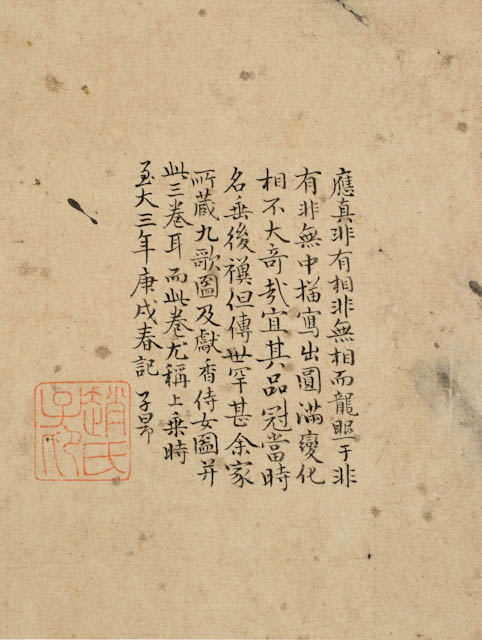 應真非有相非無相而龍眠于非
有非無中描寫出圓滿變化
相不大奇哉宜其品冠當時
名垂後禩但傳世罕甚余家
所藏九歌圖及獻香侍女圖并
此三卷耳而此卷尤稱上乘時
至大三年庚戌春記 子昂
趙氏子昂